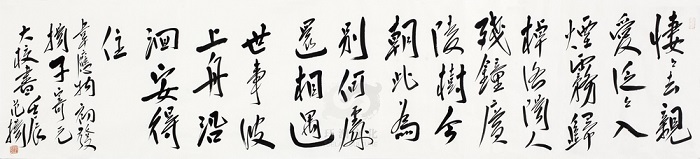 悽々去親
愛泛々入
煙霧歸
棹洛陽人
殘鐘廣
陵樹今
朝此為
別何處
還相遇
世事波
上舟沿
洄安得
住
韋應物初發
揚子寄元
大校書壬辰
范揚